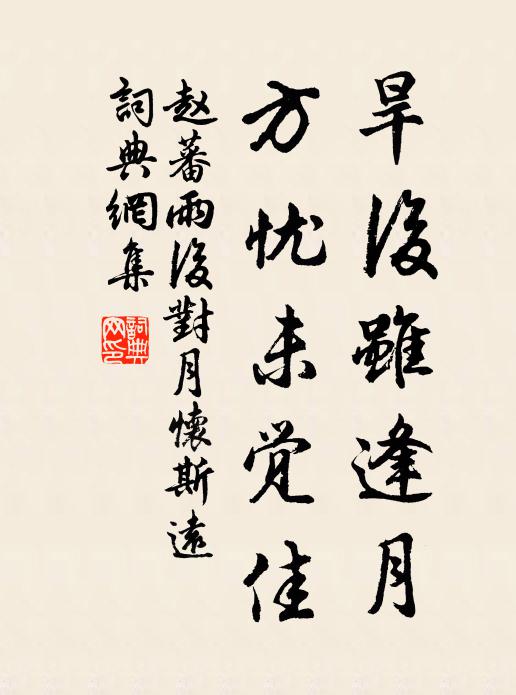 旱後雖逢月
方忧未觉佳
赵蕃雨後對月懷斯遠
詞典網集
詞典网印